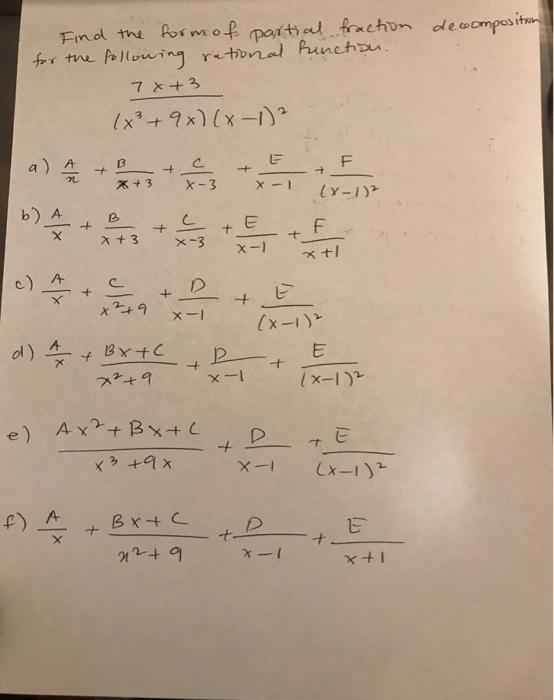 Find the form of partial fraction decomposition
for the following rational function.
7x+3
(x³+9x)(x-1)²
a) A/x + B/x+3 + C/x-3 + E/x-1 + F/(x-1)²
b) A/x + B/x+3 + C/x-3 + E/x-1 + F/x+1
c) A/x + C/x²+9 + D/x-1 + E/(x-1)²
d) A/x + Bx+C/x²+9 + D/x-1 + E/(x-1)²
e) Ax²+Bx+C/x³+9x + D/x-1 + E/(x-1)²
f) A/x + Bx+C/x²+9 + D/x-1 + E/x+1